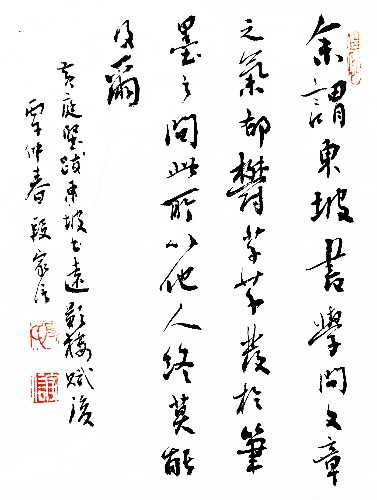 余謂東坡書學問文章
之氣郁鬱芊芊發於筆
墨之間此所以他人終莫能
及爾
黃庭堅跋東坡書遠影樓賦後
仲春段家